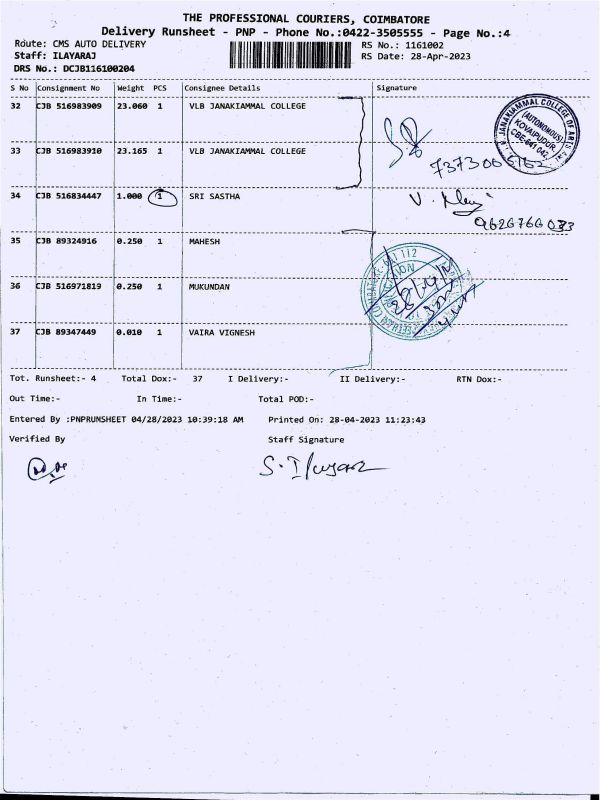 THE PROFESSIONAL COURIERS, COIMBATORE
Delivery Runsheet - PNP - Phone No.:0422-3505555 - Page No.:4
Route: CMS AUTO DELIVERY RS No.: 1161002
Staff: ILAYARAJ RS Date: 28-Apr-2023
DRS No.: DCJB116100204
S No Consignment No Weight PCS Consignee Details Signature
32 CJB 516983909 23.060 1 VLB JANAKIAMMAL COLLEGE
JANAKIAMMAL COLLEGE OF ARTS
(AUTONOMOUS)
KOVAIPUDUR
CBE-641 042
33 CJB 516983910 23.165 1 VLB JANAKIAMMAL COLLEGE
34 CJB 516834447 1.000 1 SRI SASTHA
35 CJB 89324916 0.250 1 MAHESH
36 CJB 516971819 0.250 1 MUKUNDAN
37 CJB 89347449 0.010 1 VAIRA VIGNESH
Tot. Runsheet:- 4 Total Dox:- 37 I Delivery:- II Delivery:- RTN Dox:-
Out Time:- In Time:- Total POD:-
Entered By :PNPRUNSHEET 04/28/2023 10:39:18 AM Printed On: 28-04-2023 11:23:43
Verified By Staff Signature